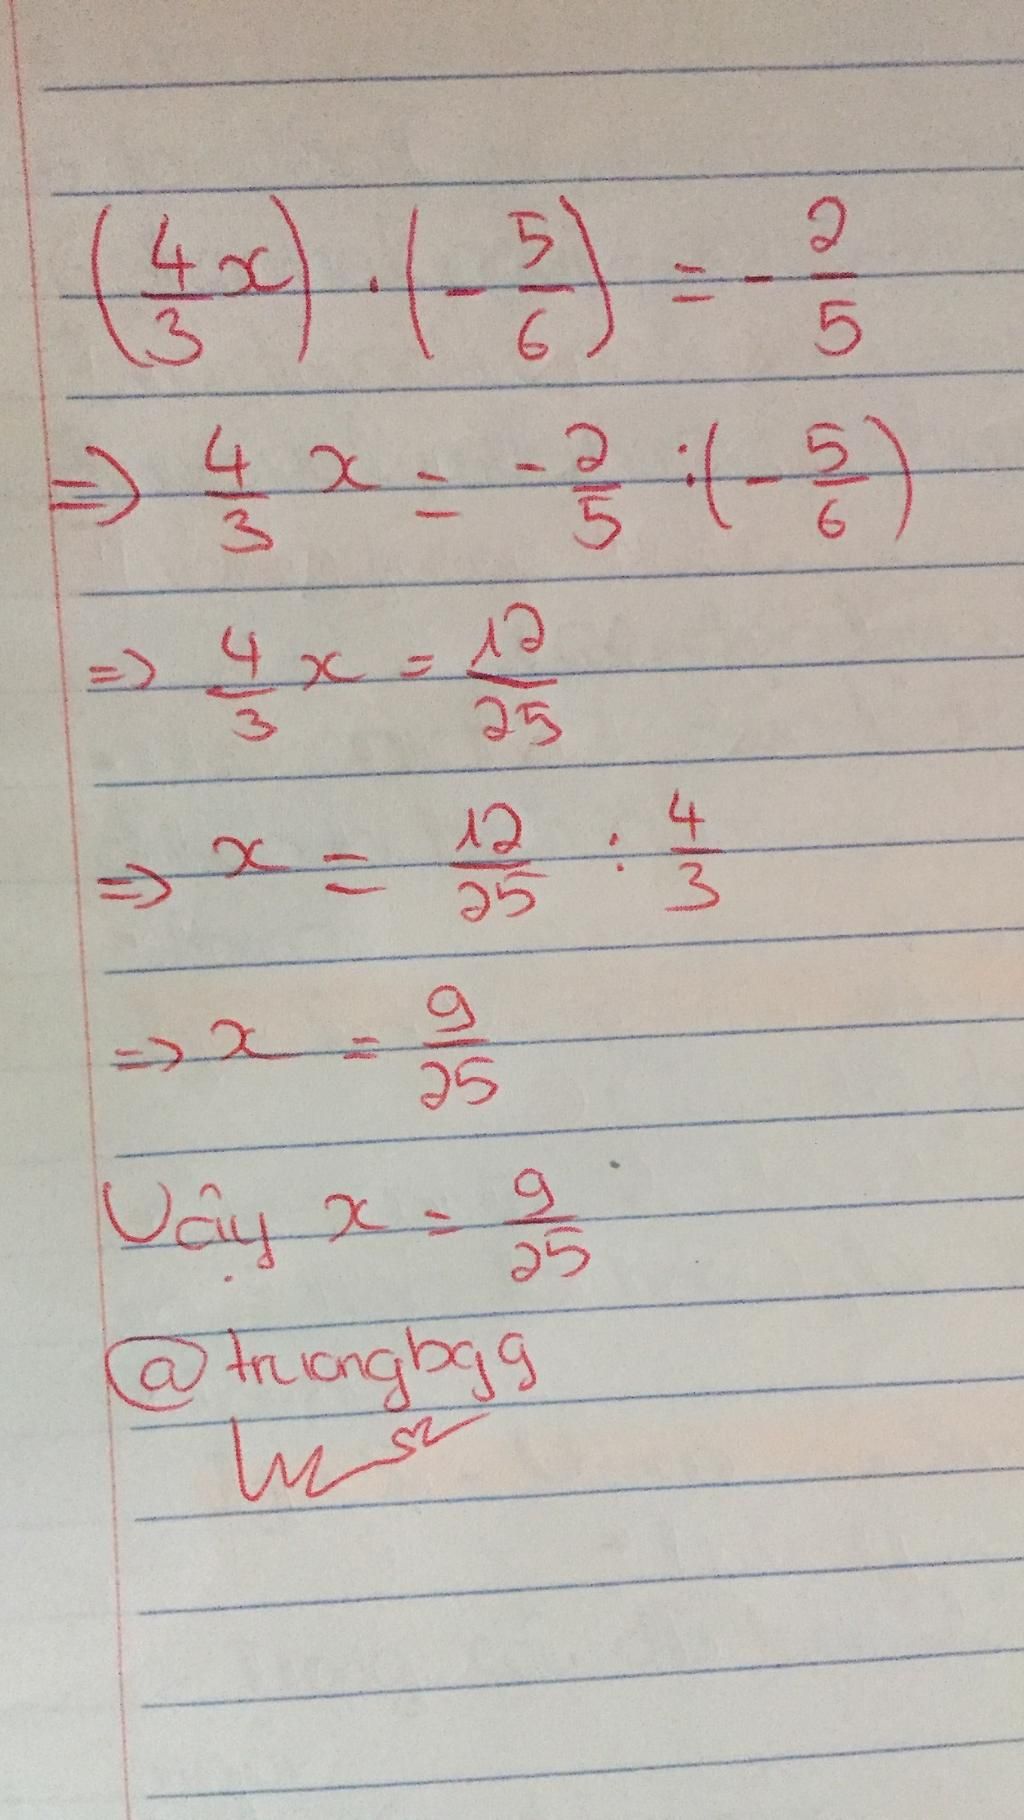 (4/3 x) . (- 5/6) = - 2/5
=> 4/3 x = - 2/5 : (- 5/6)
=> 4/3 x = 12/25
=> x = 12/25 : 4/3
=> x = 9/25
Vậy x = 9/25
@truongbgg